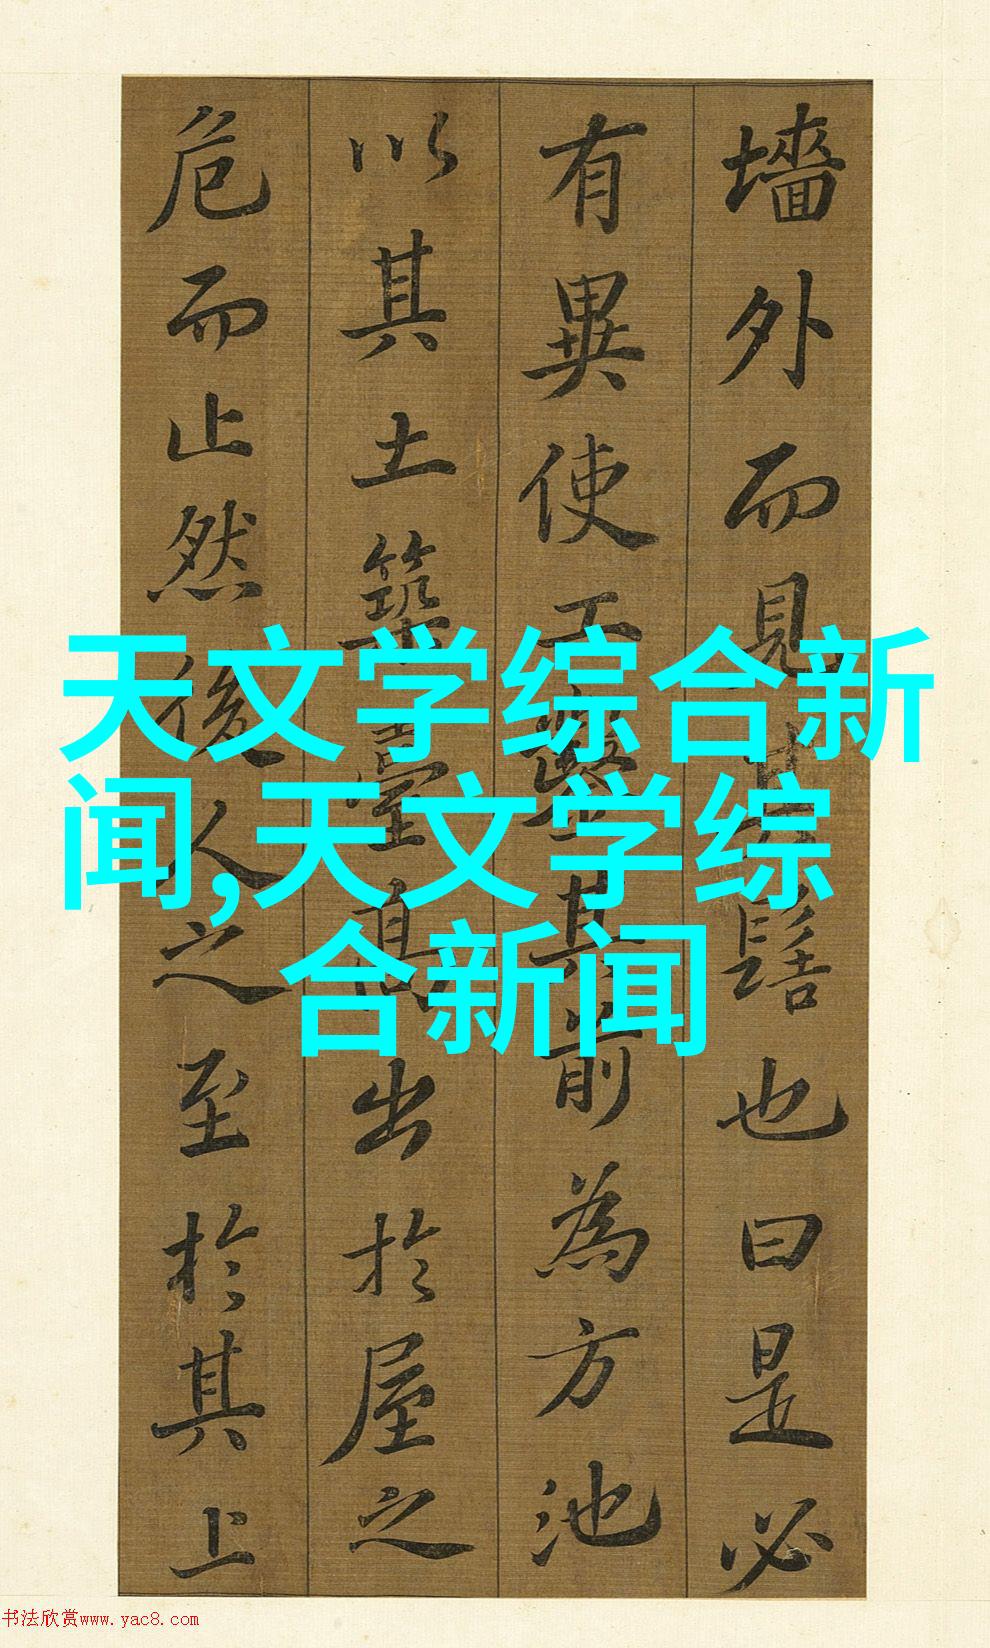 墻外而見其髻也曰是必
有異使工鑿其前為方池
以其土築臺高出於屋之
危而止然後人之至於其上
天文学综合新
闻,天文学综
合新闻
书法欣赏www.yac8.com